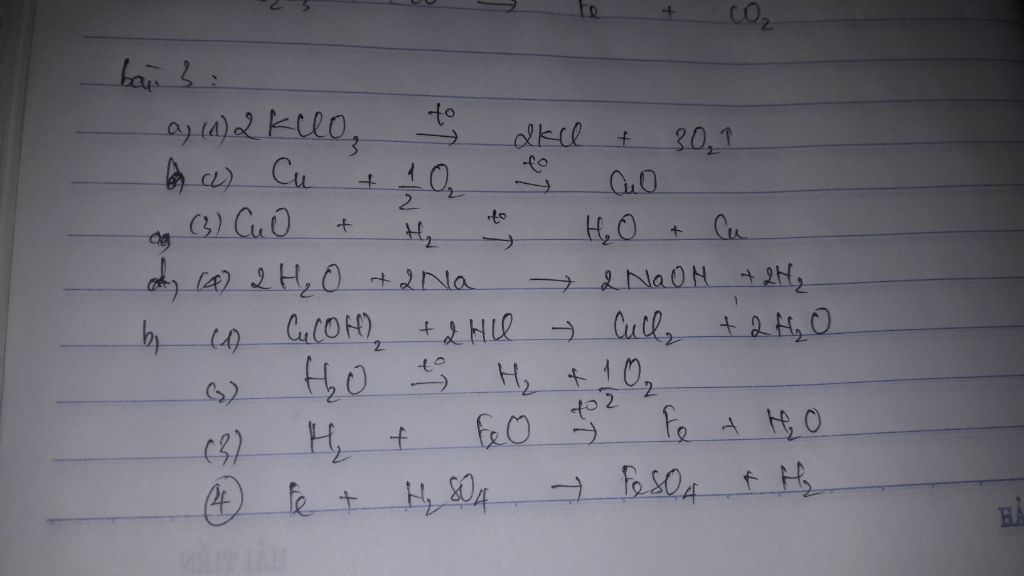 Fe + CO₂
bài 3 :
a, (1) 2KClO₃ t° → 2KCl + 3O₂↑
(2) Cu + 1/2 O₂ t° → CuO
(3) CuO + H₂ t° → H₂O + Cu
(4) 2H₂O + 2Na → 2NaOH + 2H₂
b, (1) Cu(OH)₂ + 2HCl → CuCl₂ + 2H₂O
(2) H₂O t° → H₂ + 1/2 O₂
(3) H₂ + FeO t° → Fe + H₂O
(4) Fe + H₂SO₄ → FeSO₄ + H₂
HẢI TIẾN